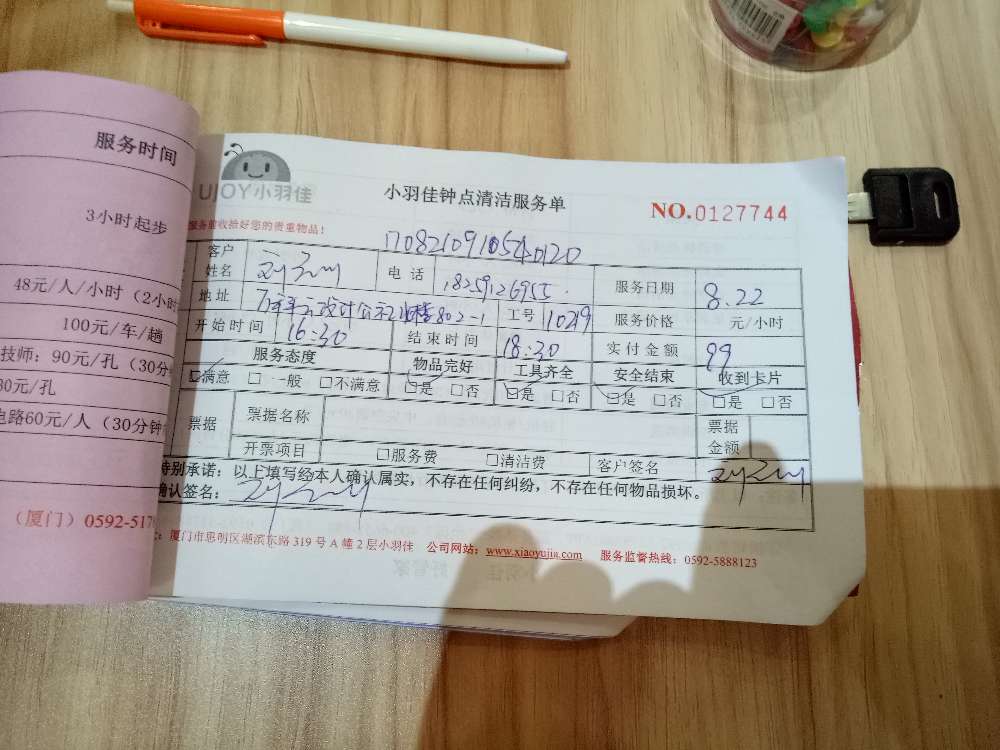 服务时间
3小时起步
48元/人/小时（2小时
100元/车/趟
技师：90元/孔（30分
30元/孔
电路60元/人（30分钟
（厦门）0592-517
UJOY小羽佳
小羽佳钟点清洁服务单
NO.0127744
服务前收拾好您的贵重物品！
17082109105420120
客户姓名
电话 18259126955
服务日期 8.22
地址 802-1
工号 10219
服务价格 元/小时
开始时间 16:30
结束时间 18:30
实付金额 99
服务态度 物品完好 工具齐全 安全结束 收到卡片
☑满意 □一般 □不满意 ☑是 □否 ☑是 □否 ☑是 □否 ☑是 □否
票据 票据名称 票据金额
开票项目 □服务费 □清洁费 客户签名
特别承诺：以上填写经本人确认属实，不存在任何纠纷，不存在任何物品损坏。
确认签名：
厦门市思明区湖滨东路319号A幢2层小羽佳 公司网站：www.xiaoyujia.com 服务监督热线：0592-5888123